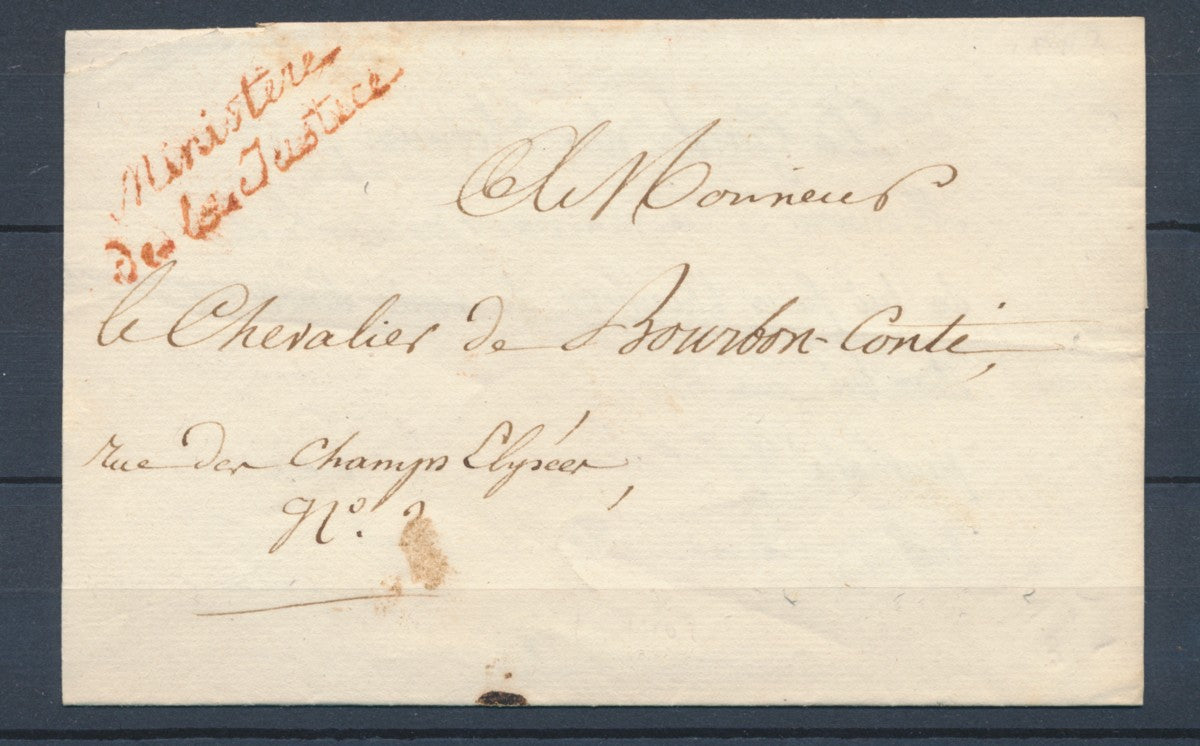 Ministère
de la Justice
A Monsieur
le Chevalier de Bourbon-Conti,
rue des Champs Elysées,
N°.